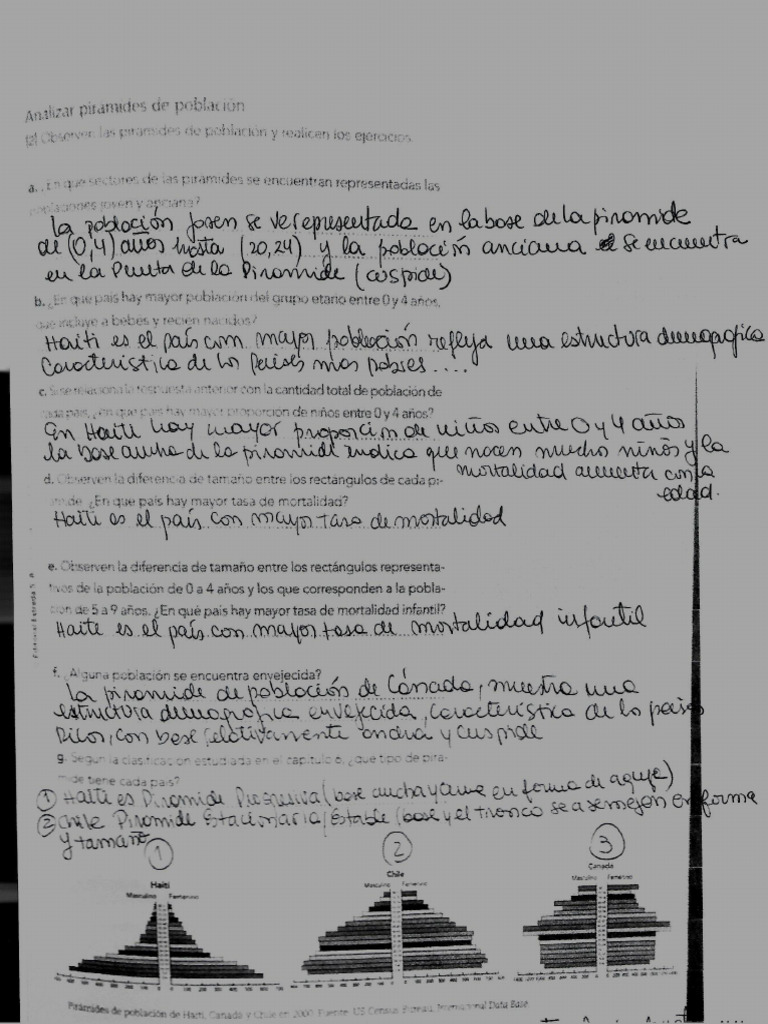 Analizar pirámides de población
Observen las pirámides de población y realicen los ejercicios.
a. ¿En qué sectores de las pirámides se encuentran representadas las
poblaciones joven y anciana?
La población joven se ve representada en la base de la piramide
de (0,4) años hasta (20,24) y la población anciana se encuentra
en la Punta de la Piramide (cúspide)
b. ¿En qué país hay mayor población del grupo etario entre 0 y 4 años,
que incluye a bebés y recién nacidos?
Haiti es el país con mayor población refleja una estructura demografica
Caracteristica de los Paises mas pobres....
c. Si se relaciona la respuesta anterior con la cantidad total de población de
cada país, ¿en qué país hay mayor proporción de niños entre 0 y 4 años?
En Haiti hay mayor proporción de niños entre 0 y 4 años
la base ancha de la piramide indica que nacen mucho niños y la
mortalidad aumenta con la
edad.
d. Observen la diferencia de tamaño entre los rectángulos de cada pi-
rámide. ¿En qué país hay mayor tasa de mortalidad?
Haiti es el país con mayor tasa de mortalidad
e. Observen la diferencia de tamaño entre los rectángulos representa-
tivos de la población de 0 a 4 años y los que corresponden a la pobla-
ción de 5 a 9 años. ¿En qué país hay mayor tasa de mortalidad infantil?
Haite es el país con mayor tasa de mortalidad infantil
f. ¿Alguna población se encuentra envejecida?
La piramide de población de Cánada, muestra una
estructura demografica envejecida, Caracteristica de lo paises
Ricos, con base relativamente ancha y cuspide
g. Según la clasificación estudiada en el capítulo 6, ¿qué tipo de pirá-
mide tiene cada país?
① Haiti es Piramide Progresiva (base ancha y cima en forma de aguja)
② Chile Piramide Estacionaria/Estable (base y el tronco se asemejan en forma
y tamaño
① ② ③
Haití Chile Canadá
Masculino Femenino Masculino Femenino Masculino Femenino
Pirámides de población de Haití, Canadá y Chile en 2000. Fuente: US Census Bureau, International Data Base.